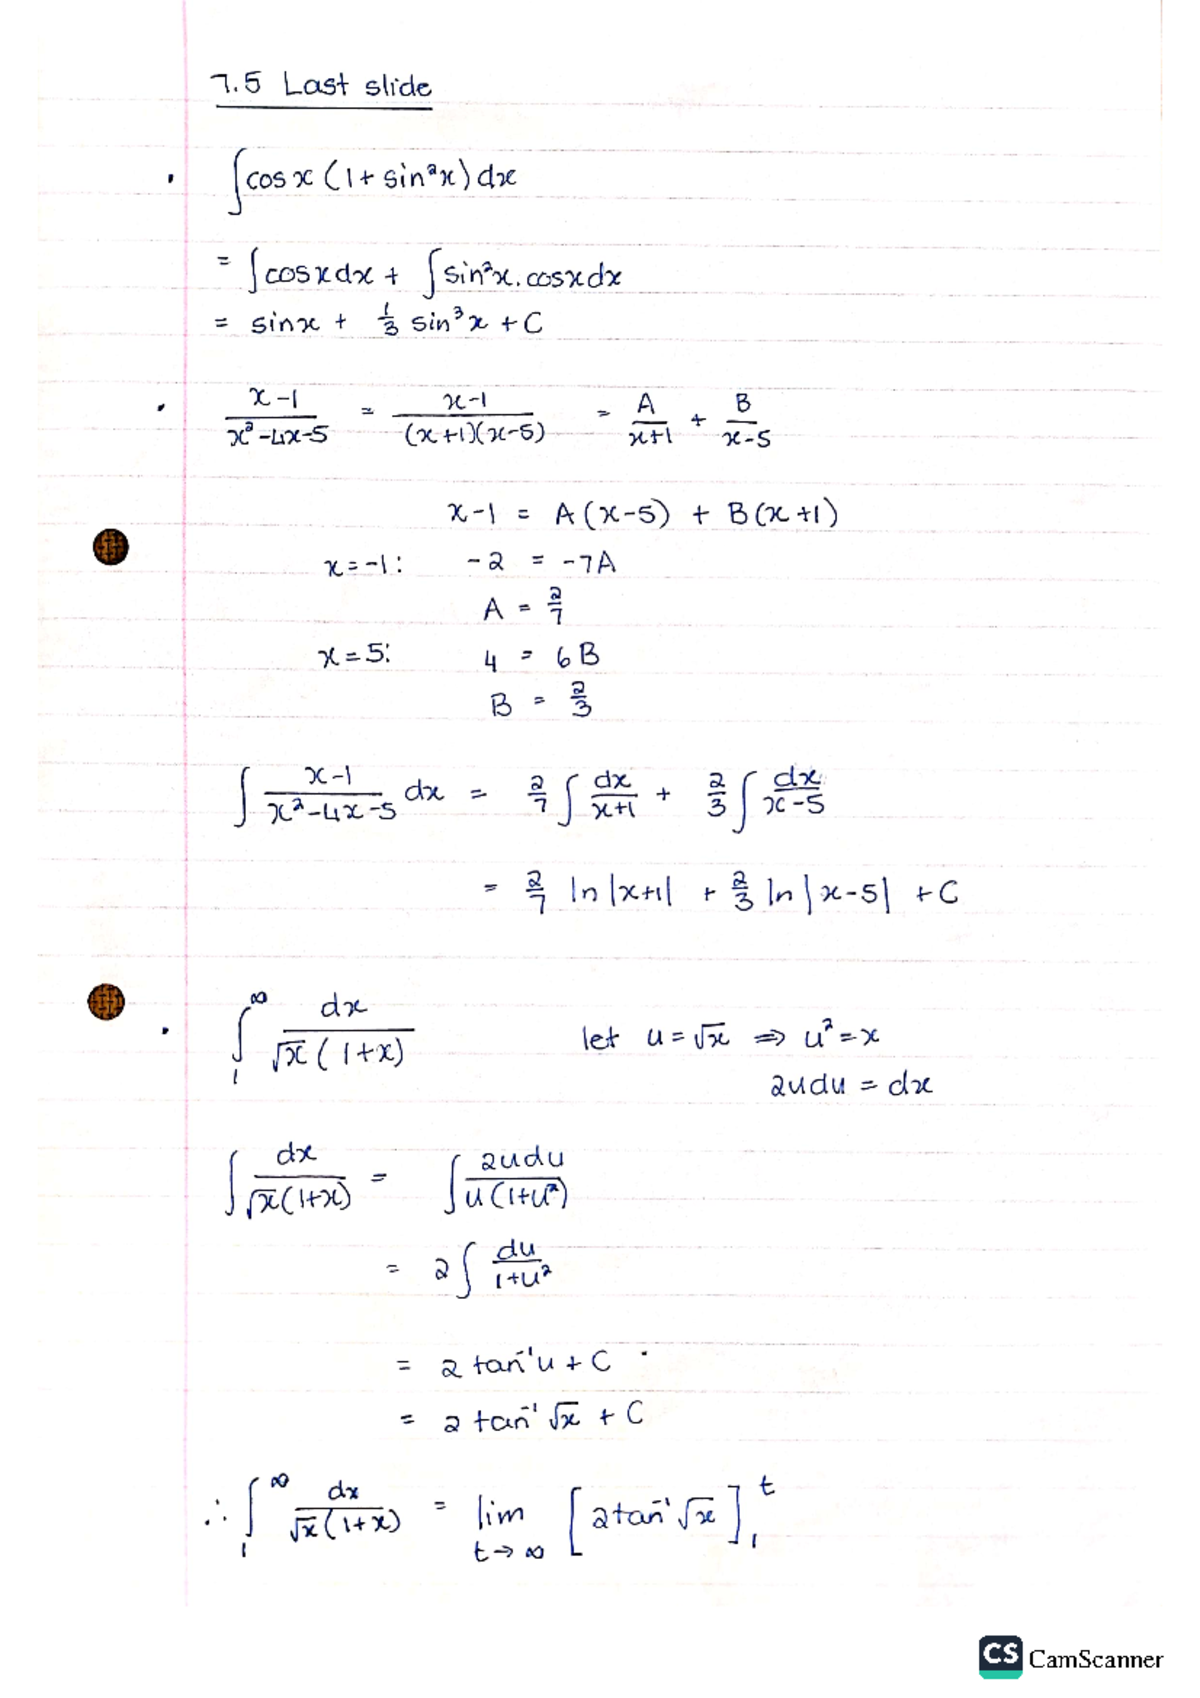 7.5 Last slide
∫cosx(1+sin²x)dx
= ∫cosxdx + ∫sin²x.cosxdx
= sinx + 1/3 sin³x + C
(x-1)/(x²-4x-5) = (x-1)/((x+1)(x-5)) = A/(x+1) + B/(x-5)
x-1 = A(x-5) + B(x+1)
x=-1: -2 = -7A
A = 2/7
x=5: 4 = 6B
B = 2/3
∫ (x-1)/(x²-4x-5) dx = 2/7 ∫ dx/(x+1) + 2/3 ∫ dx/(x-5)
= 2/7 ln|x+1| + 2/3 ln|x-5| + C
∫₁^∞ dx/(√x(1+x)) let u=√x ⇒ u²=x
2udu = dx
∫ dx/(√x(1+x)) = ∫ 2udu/(u(1+u²))
= 2∫ du/(1+u²)
= 2tan⁻¹u + C
= 2tan⁻¹√x + C
∴ ∫₁^∞ dx/(√x(1+x)) = lim t→∞ [2tan⁻¹√x]₁^t
CS CamScanner